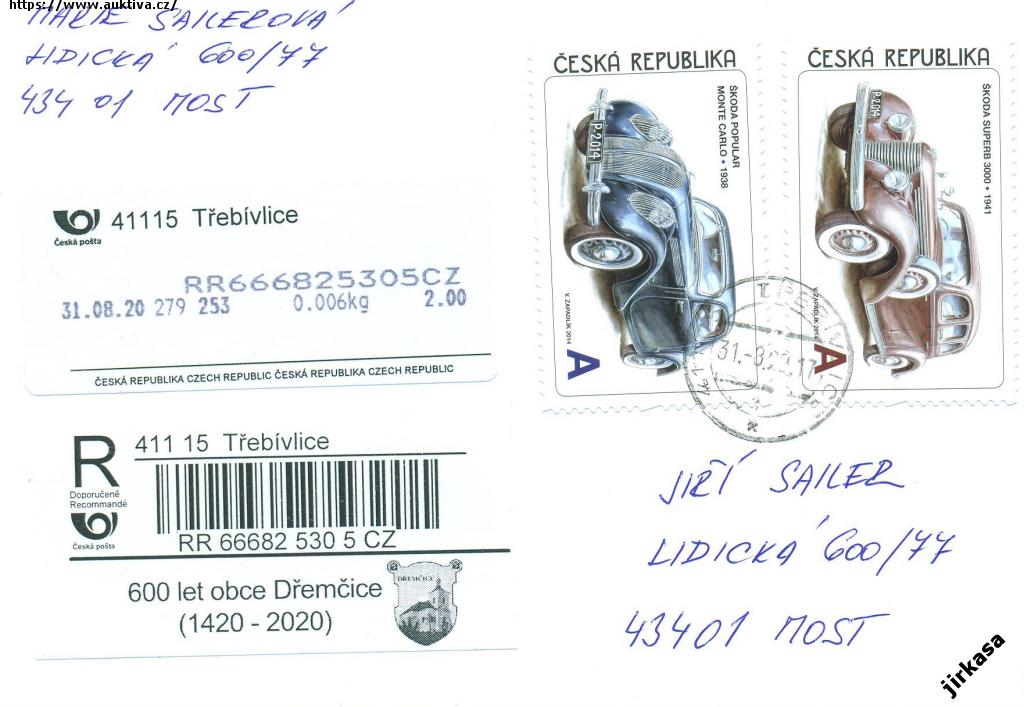 https://www.auktiva.cz/
MARIE SAILEROVÁ
LIDICKÁ 600/77
434 01 MOST
Česká pošta
41115 Třebívlice
RR666825305CZ
31.08.20 279 253 0.006kg 2.00
ČESKÁ REPUBLIKA CZECH REPUBLIC ČESKÁ REPUBLIKA CZECH REPUBLIC
R
Doporučeně
Recommandé
Česká pošta
411 15 Třebívlice
RR 66682 530 5 CZ
600 let obce Dřemčice
(1420 - 2020)
DŘEMČICE
ČESKÁ REPUBLIKA
ŠKODA POPULAR
MONTE CARLO • 1938
P-2014
V. ZAPADLÍK 2014
A
ČESKÁ REPUBLIKA
ŠKODA SUPERB 3000 • 1941
P-2014
V. ZAPADLÍK 2014
A
JIŘÍ SAILER
LIDICKÁ 600/77
43401 MOST
jirkasa